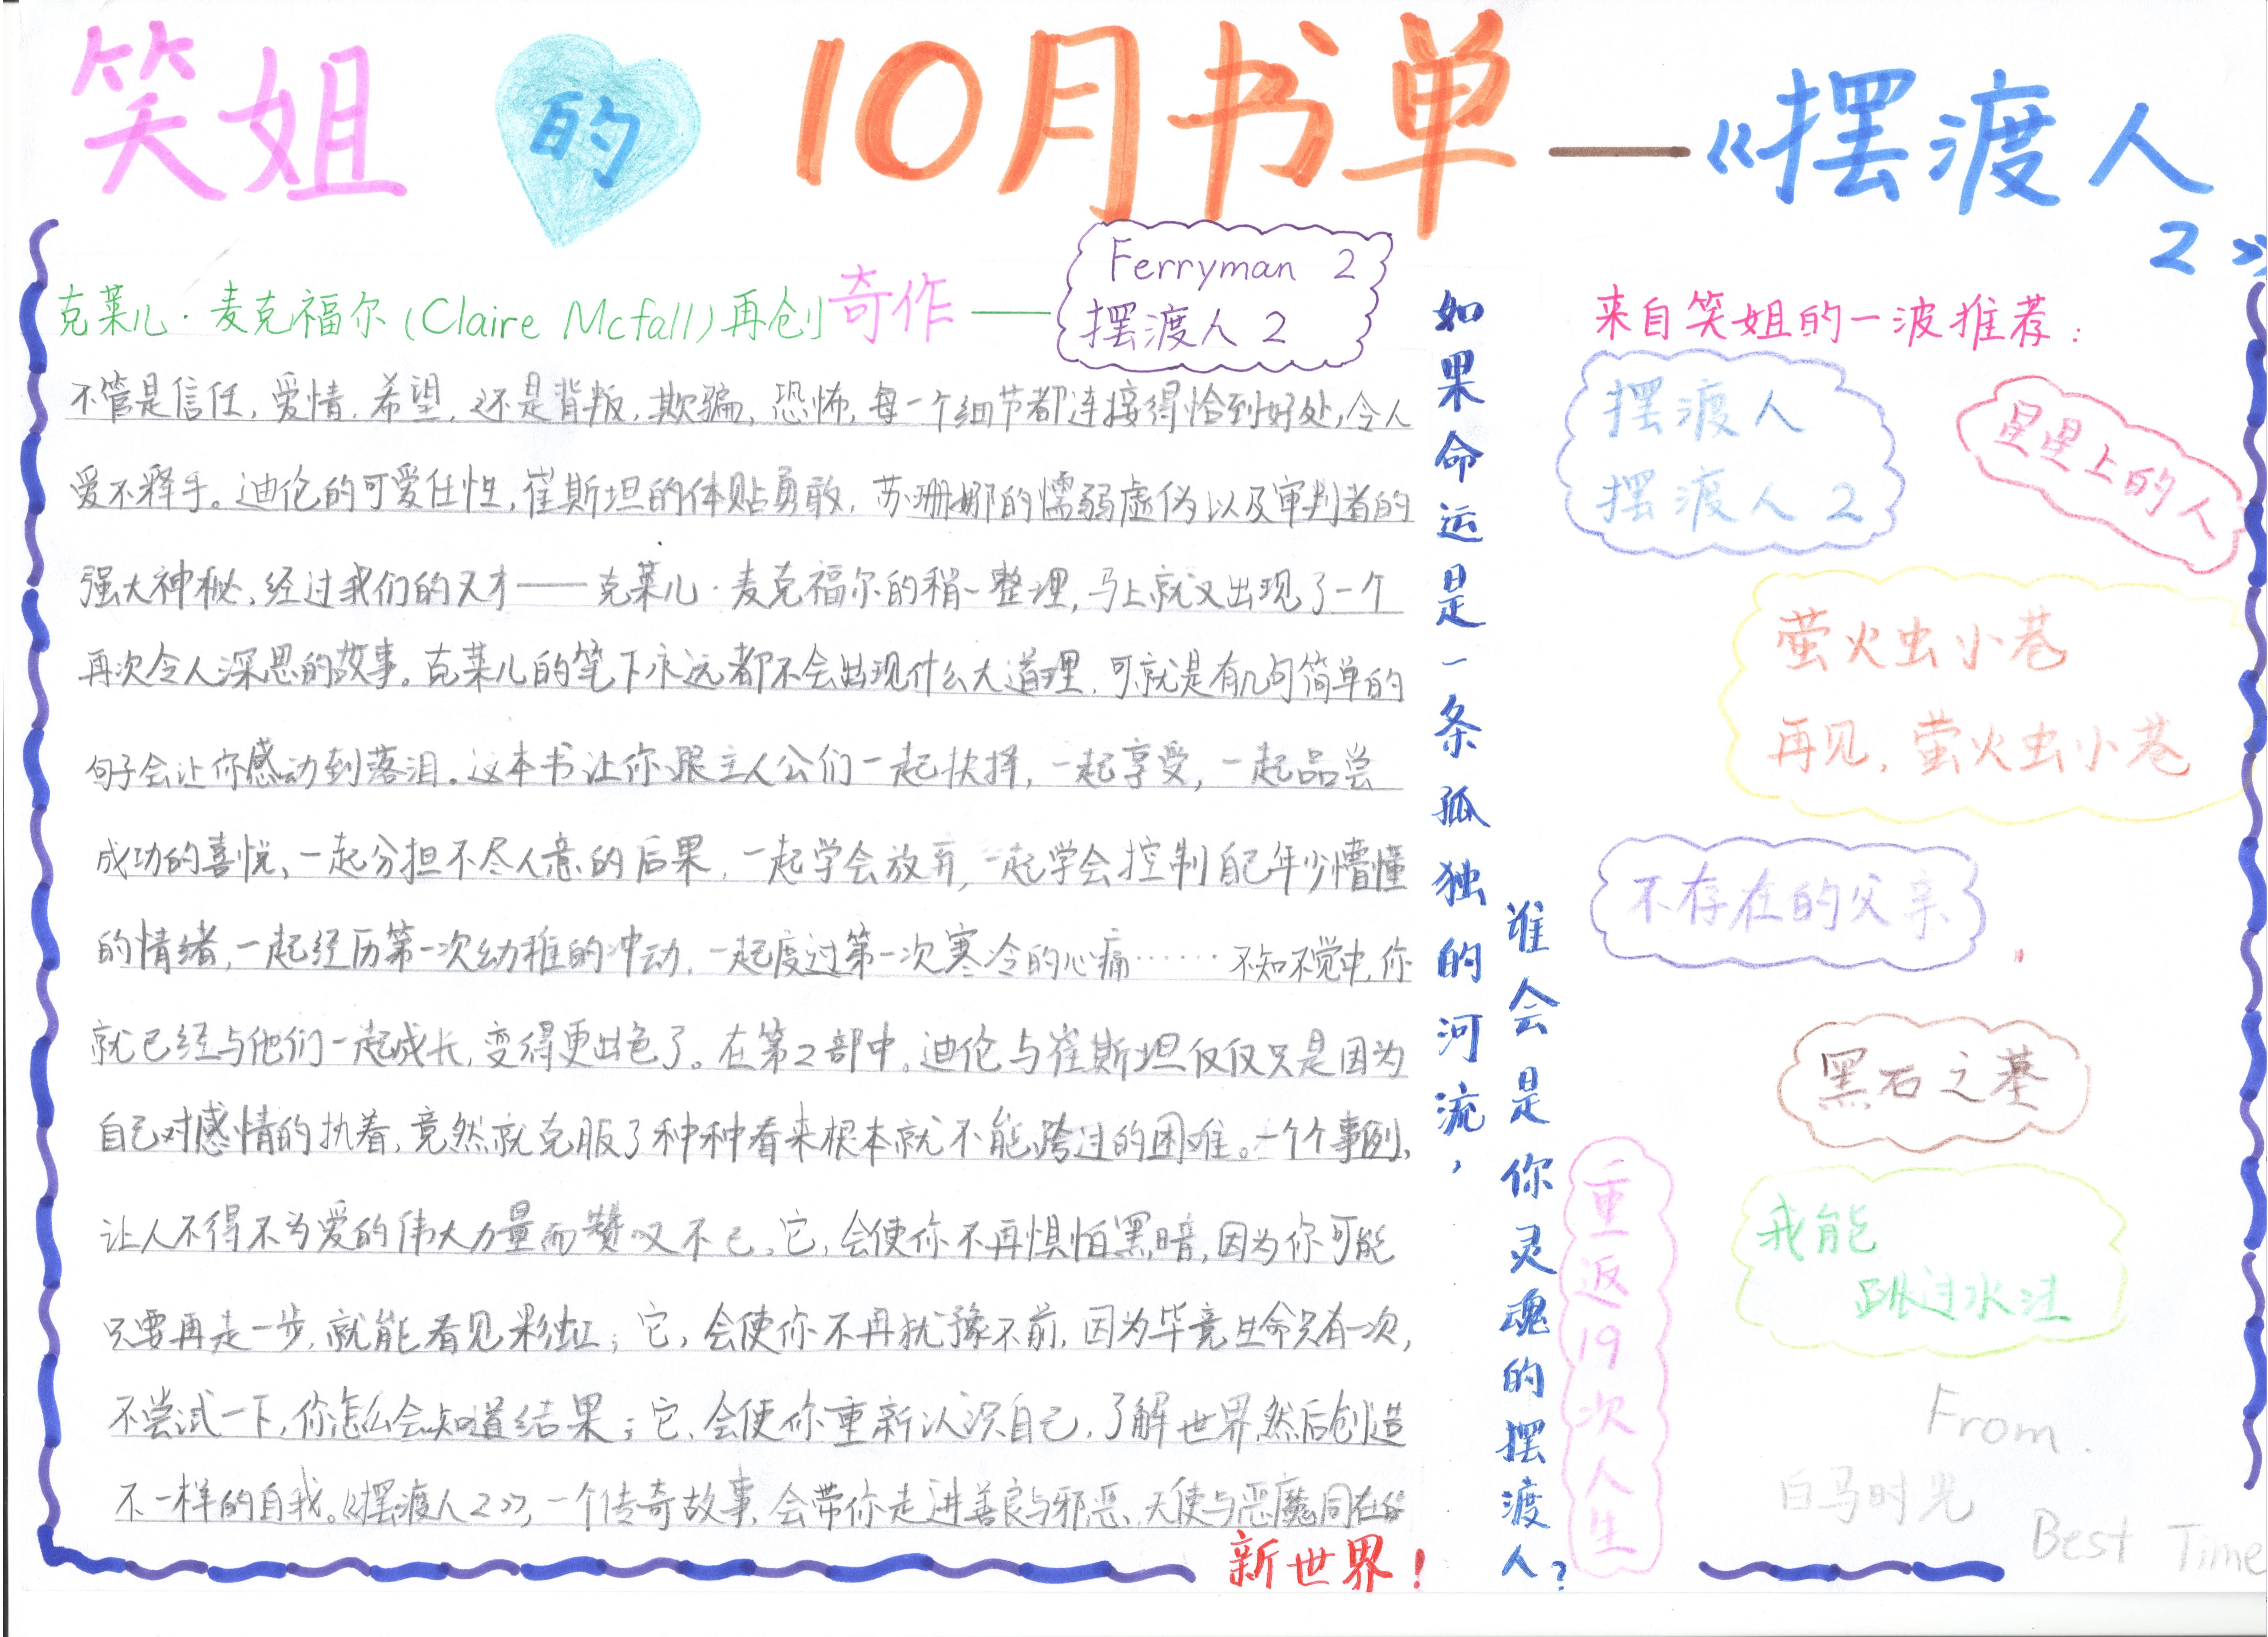 笑姐的10月书单—《摆渡人2》
克莱儿·麦克福尔(Claire Mcfall)再创奇作——
Ferryman 2
摆渡人 2
不管是信任,爱情,希望,还是背叛,欺骗,恐怖,每一个细节都连接得恰到好处,令人
爱不释手。迪伦的可爱任性,崔斯坦的体贴勇敢,苏珊娜的懦弱虚伪以及审判者的
强大神秘,经过我们的天才——克莱儿·麦克福尔的稍一整理,马上就又出现了一个
再次令人深思的故事。克莱儿的笔下永远都不会出现什么大道理,可就是有几句简单的
句子会让你感动到落泪。这本书让你跟主人公们一起抉择,一起享受,一起品尝
成功的喜悦、一起分担不尽人意的后果,一起学会放弃,一起学会控制自己年少懵懂
的情绪,一起经历第一次幼稚的冲动,一起度过第一次寒冷的心痛……不知不觉中,你
就已经与他们一起成长,变得更出色了。在第2部中,迪伦与崔斯坦仅仅只是因为
自己对感情的执着,竟然就克服了种种看来根本就不能跨过的困难。一个个事例,
让人不得不为爱的伟大力量而赞叹不已。它,会使你不再惧怕黑暗,因为你可能
只要再走一步,就能看见彩虹;它,会使你不再犹豫不前,因为毕竟生命只有一次,
不尝试一下,你怎么会知道结果;它,会使你重新认识自己,了解世界,然后创造
不一样的自我。《摆渡人2》,一个传奇故事,会带你走进善良与邪恶、天使与恶魔同在的
新世界!
如果命运是一条孤独的河流,
谁会是你灵魂的摆渡人?
来自笑姐的一波推荐:
摆渡人
摆渡人 2
星星上的人
萤火虫小巷
再见,萤火虫小巷
不存在的父亲
黑石之墓
我能
跳过水洼
重返19次人生
From.
白马时光
Best Time